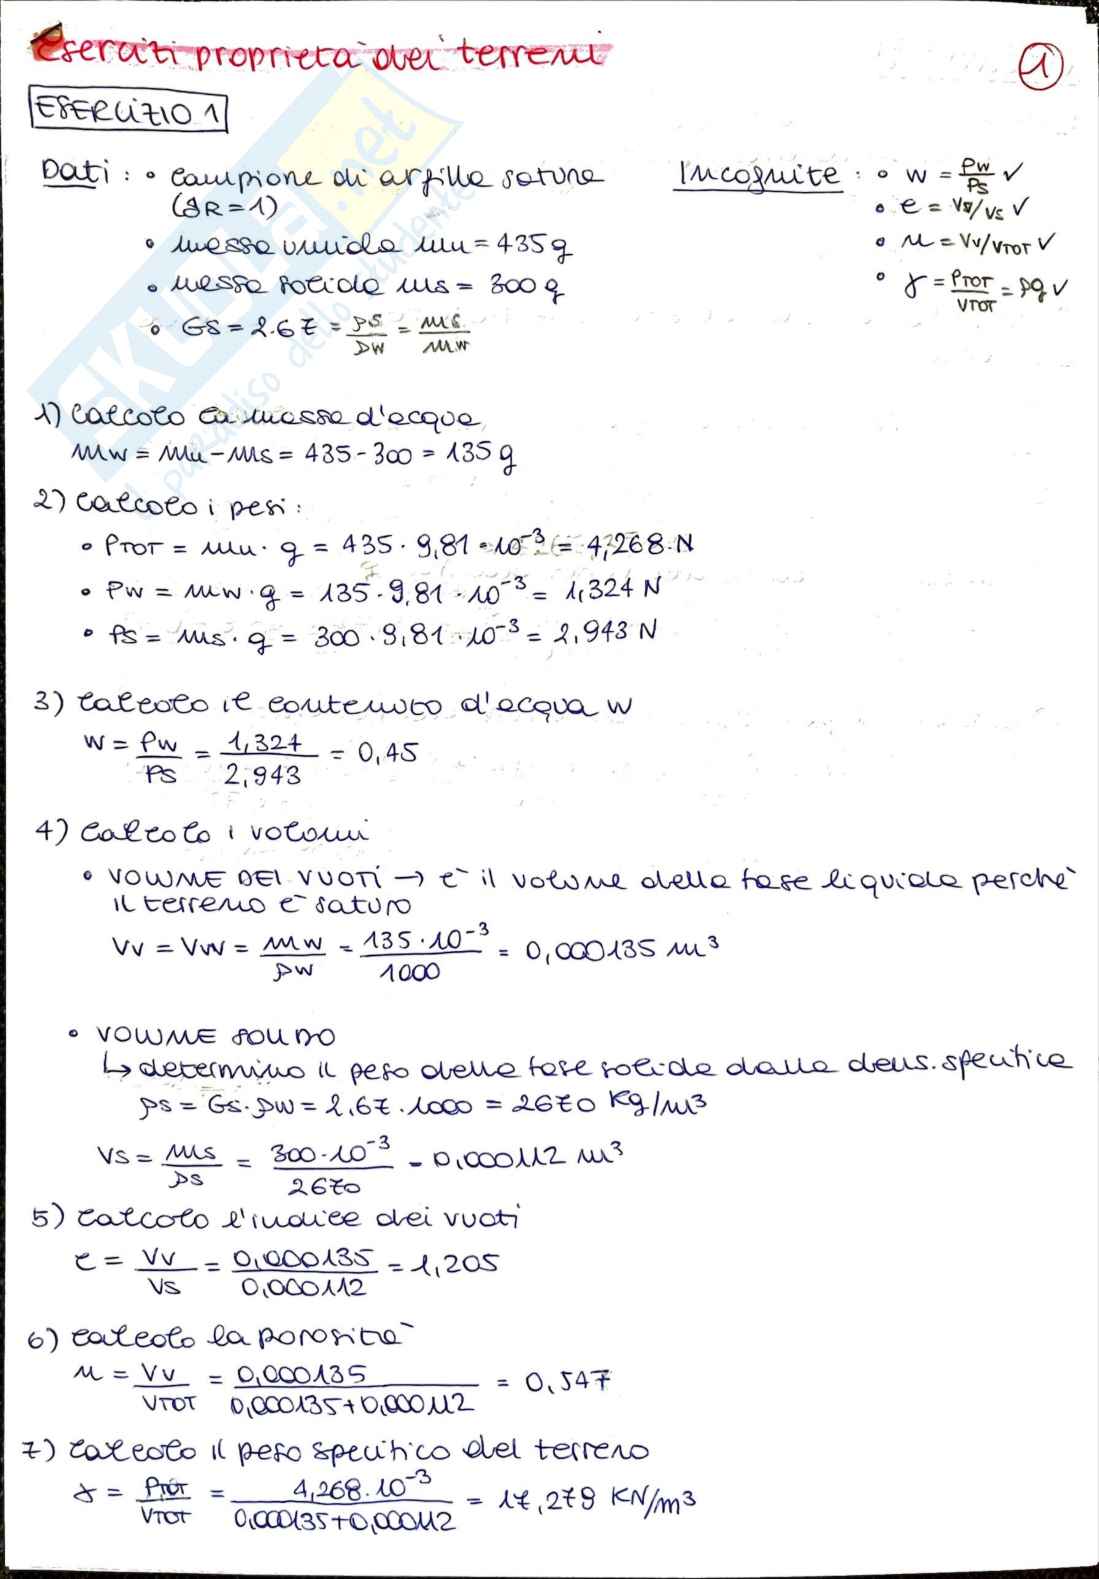 Esercizi proprietà dei terreni
1
ESERCIZIO 1
Dati: • campione di argilla satura
(SR=1)
• massa umida mu = 435 g
• massa solida ms = 300 g
• GS = 2.67 = ρs/ρw = ms/mw
Incognite: • w = Pw/Ps ✓
• e = Vv/Vs ✓
• n = Vv/VTOT ✓
• γ = PTOT/VTOT = ρg ✓
SKUOLA.net
il paradiso dello studente
1) calcolo la massa d'acqua
mw = mu - ms = 435 - 300 = 135 g
2) calcolo i pesi:
• PTOT = mu · g = 435 · 9,81 · 10⁻³ = 4,268 N
• Pw = mw · g = 135 · 9,81 · 10⁻³ = 1,324 N
• Ps = ms · g = 300 · 9,81 · 10⁻³ = 2,943 N
3) calcolo il contenuto d'acqua w
w = Pw/Ps = 1,324/2,943 = 0,45
4) calcolo i volumi
• VOLUME DEI VUOTI → è il volume della fase liquida perchè
il terreno è saturo
Vv = Vw = mw/ρw = 135·10⁻³/1000 = 0,000135 m³
• VOLUME SOLIDO
↳ determino il peso della fase solida dalla dens. specifica
ρs = Gs·ρw = 2,67·1000 = 2670 Kg/m³
Vs = ms/ρs = 300·10⁻³/2670 = 0,000112 m³
5) calcolo l'indice dei vuoti
e = Vv/Vs = 0,000135/0,000112 = 1,205
6) calcolo la porosità
n = Vv/VTOT = 0,000135/0,000135+0,000112 = 0,547
7) calcolo il peso specifico del terreno
γ = PTOT/VTOT = 4,268·10⁻³/0,000135+0,000112 = 17,279 KN/m³